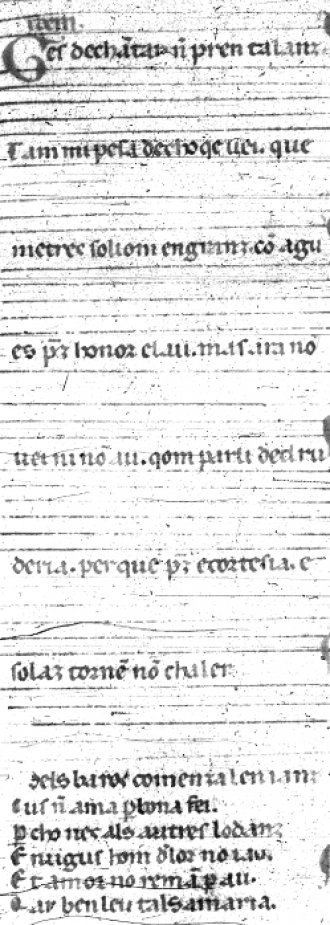 Ges dechātar n̄ pren talanz.
Tam mi pesa decho qe uei. que
metree soliom engranz. cō agu
es p̄z honor elau. mas ara nō
uei ni nō au. qom parli dedru
deria. per quē p̄z ecortesia. e
solaz tornē nō chaler.
dels baros comenzalen ianz
cus n̄ ama p bona fei.
p cho nec als autres lo danz
E nuigus hom dlor no iau.
E tamor no remā p au.
Qar ben leu tals amaria.